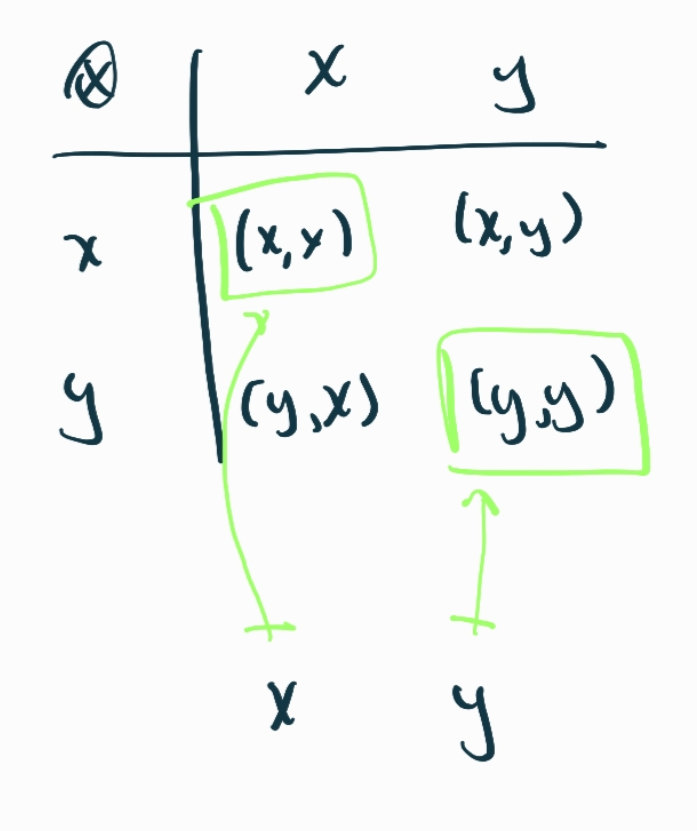 ⊗ x y
x (x,x) (x,y)
y (y,x) (y,y)
x y